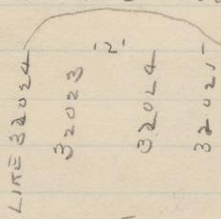 LIKE 32024
32023
"2"
32024
32025